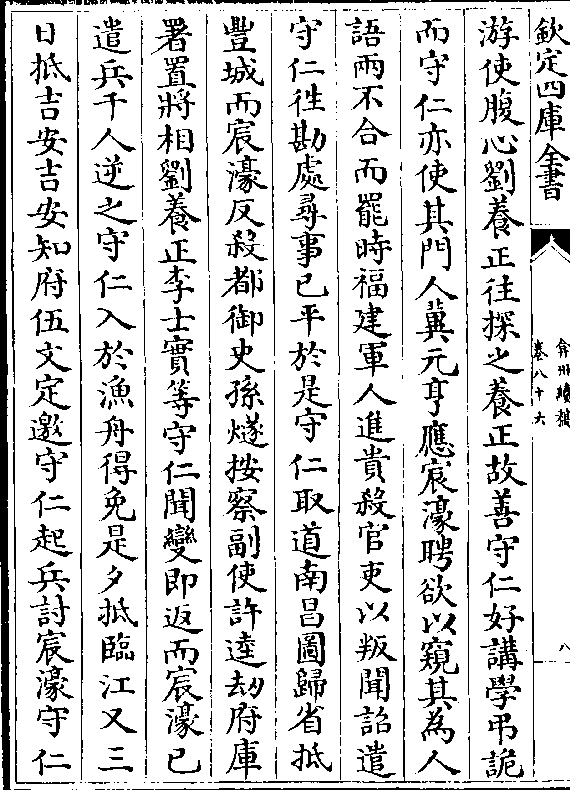 欽定四庫全書
弇州續稿
卷八十六
八
游使腹心劉養正往探之養正故善守仁好講學弔詭
而守仁亦使其門人冀元亨應宸濠聘欲以窺其為人
語兩不合而罷時福建軍人進貴殺官吏以叛聞詔遣
守仁徃勘處尋事已平於是守仁取道南昌圖歸省抵
豐城而宸濠反殺都御史孫燧按察副使許逵劫府庫
署置將相劉養正李士實等守仁聞變即返而宸濠已
遣兵千人逆之守仁入於漁舟得免是夕抵臨江又三
日抵吉安吉安知府伍文定邀守仁起兵討宸濠守仁